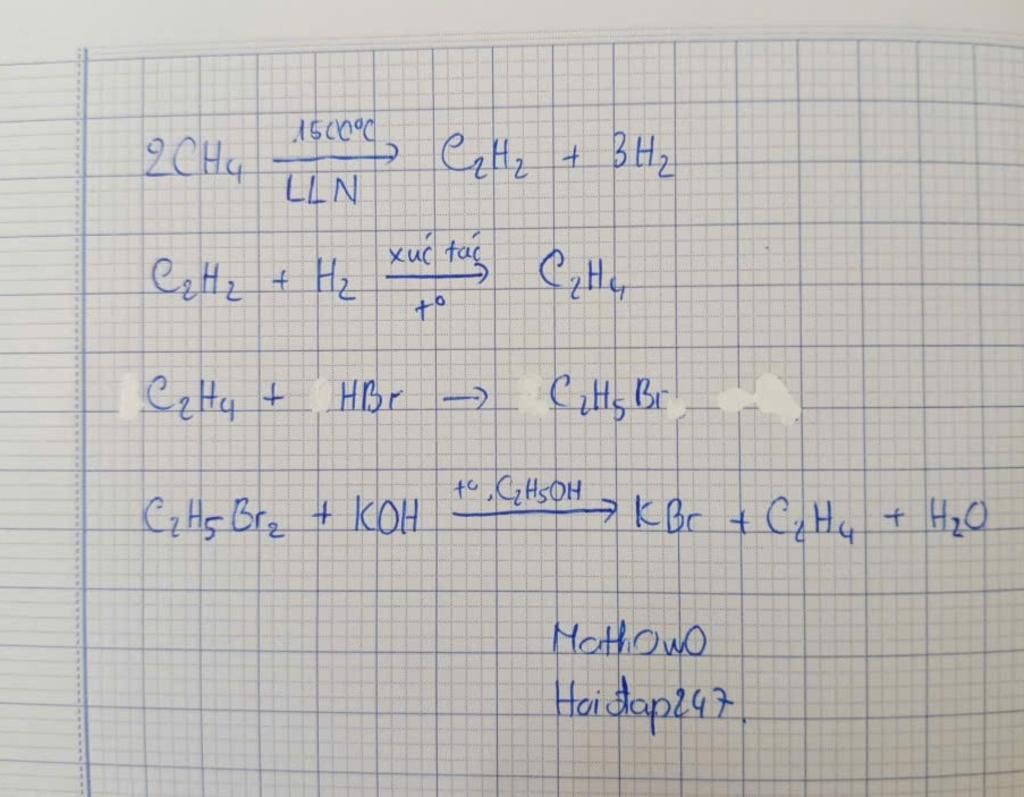 2CH₄ 1500°C → LLN C₂H₂ + 3H₂
C₂H₂ + H₂ xúc tác → t° C₂H₄
C₂H₄ + HBr → C₂H₅Br
C₂H₅Br₂ + KOH t°, C₂H₅OH → KBr + C₂H₄ + H₂O
MathOwO
Hoidap247.